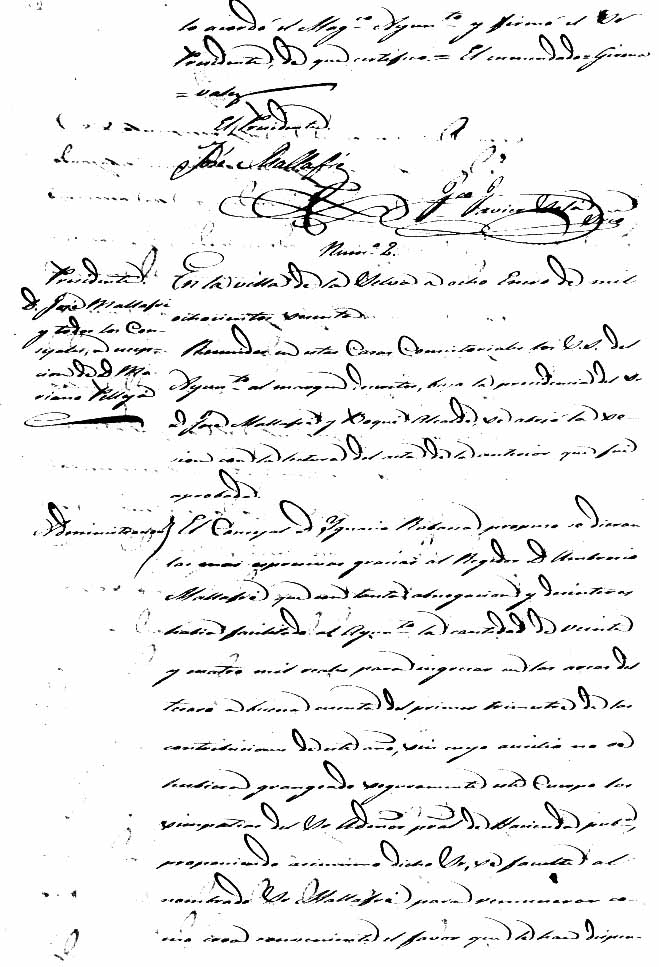 lo acordó el Mag.co Ayun.to y firmó el Sr
Presidente, de que certifico = El enmendado = Girona
= vale
El Presidente
José Mallafré
Fco J.
Javier
Num.o 2.
Presidente
D. José Mallafré
y todos los Con-
cejales, a excep-
cion de D. Ma-
riano
En la villa de la Selva a ocho Enero de mil
ochocientos setenta.
Reunidos en estas Casas Consistoriales los S.S. del
Ayun.to al margen descritos, bajo la presidencia del Sr
D. José Mallafré y Roque, Alcalde, se abrió la se-
sion con la lectura del acta de la anterior que fué
aprobada.
Administrador
El Concejal D. Ygnacio Rabassa propuso se dieran
las mas espresivas gracias al Regidor D. Ambrosio
Mallafré que con tanta abnegacion y desinteres
habia facilitado al Ayun.to la cantidad de veinte
y cuatro mil reales para ingresar en las arcas del
tesoro a buena cuenta del primer trimestre de las
contribuciones de este año, sin cuyo auxilio no se
hubiera grangeado seguramente este Cuerpo las
simpatias del Sr Admor. pral. de Hacienda pub.ca,
proponiendo asimismo dicho Sr, se faculte al
nombrado Sr Mallafré para remunerar co-
mo crea conveniente el favor que le han dispen-